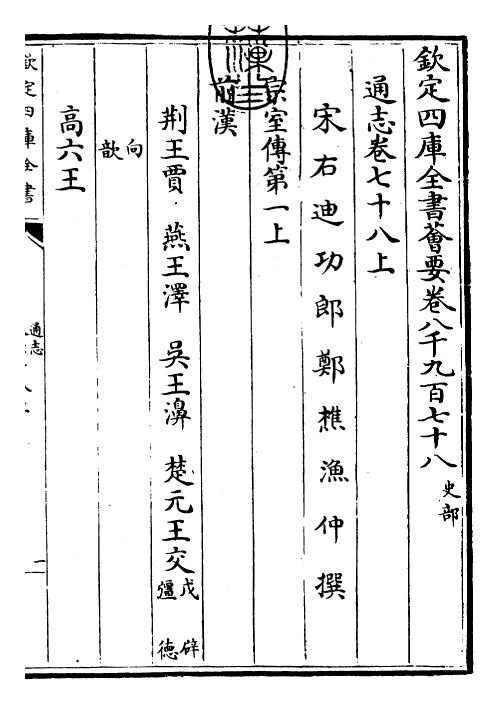 欽定四庫全書薈要卷八千九百七十八 史部
通志卷七十八上
宋右迪功郎鄭樵漁仲撰
宗室傳第一上
前漢
荆王賈 燕王澤 吳王濞 楚元王交 戊 辟彊 德
向 歆
高六王
欽定四庫全書
通志
一